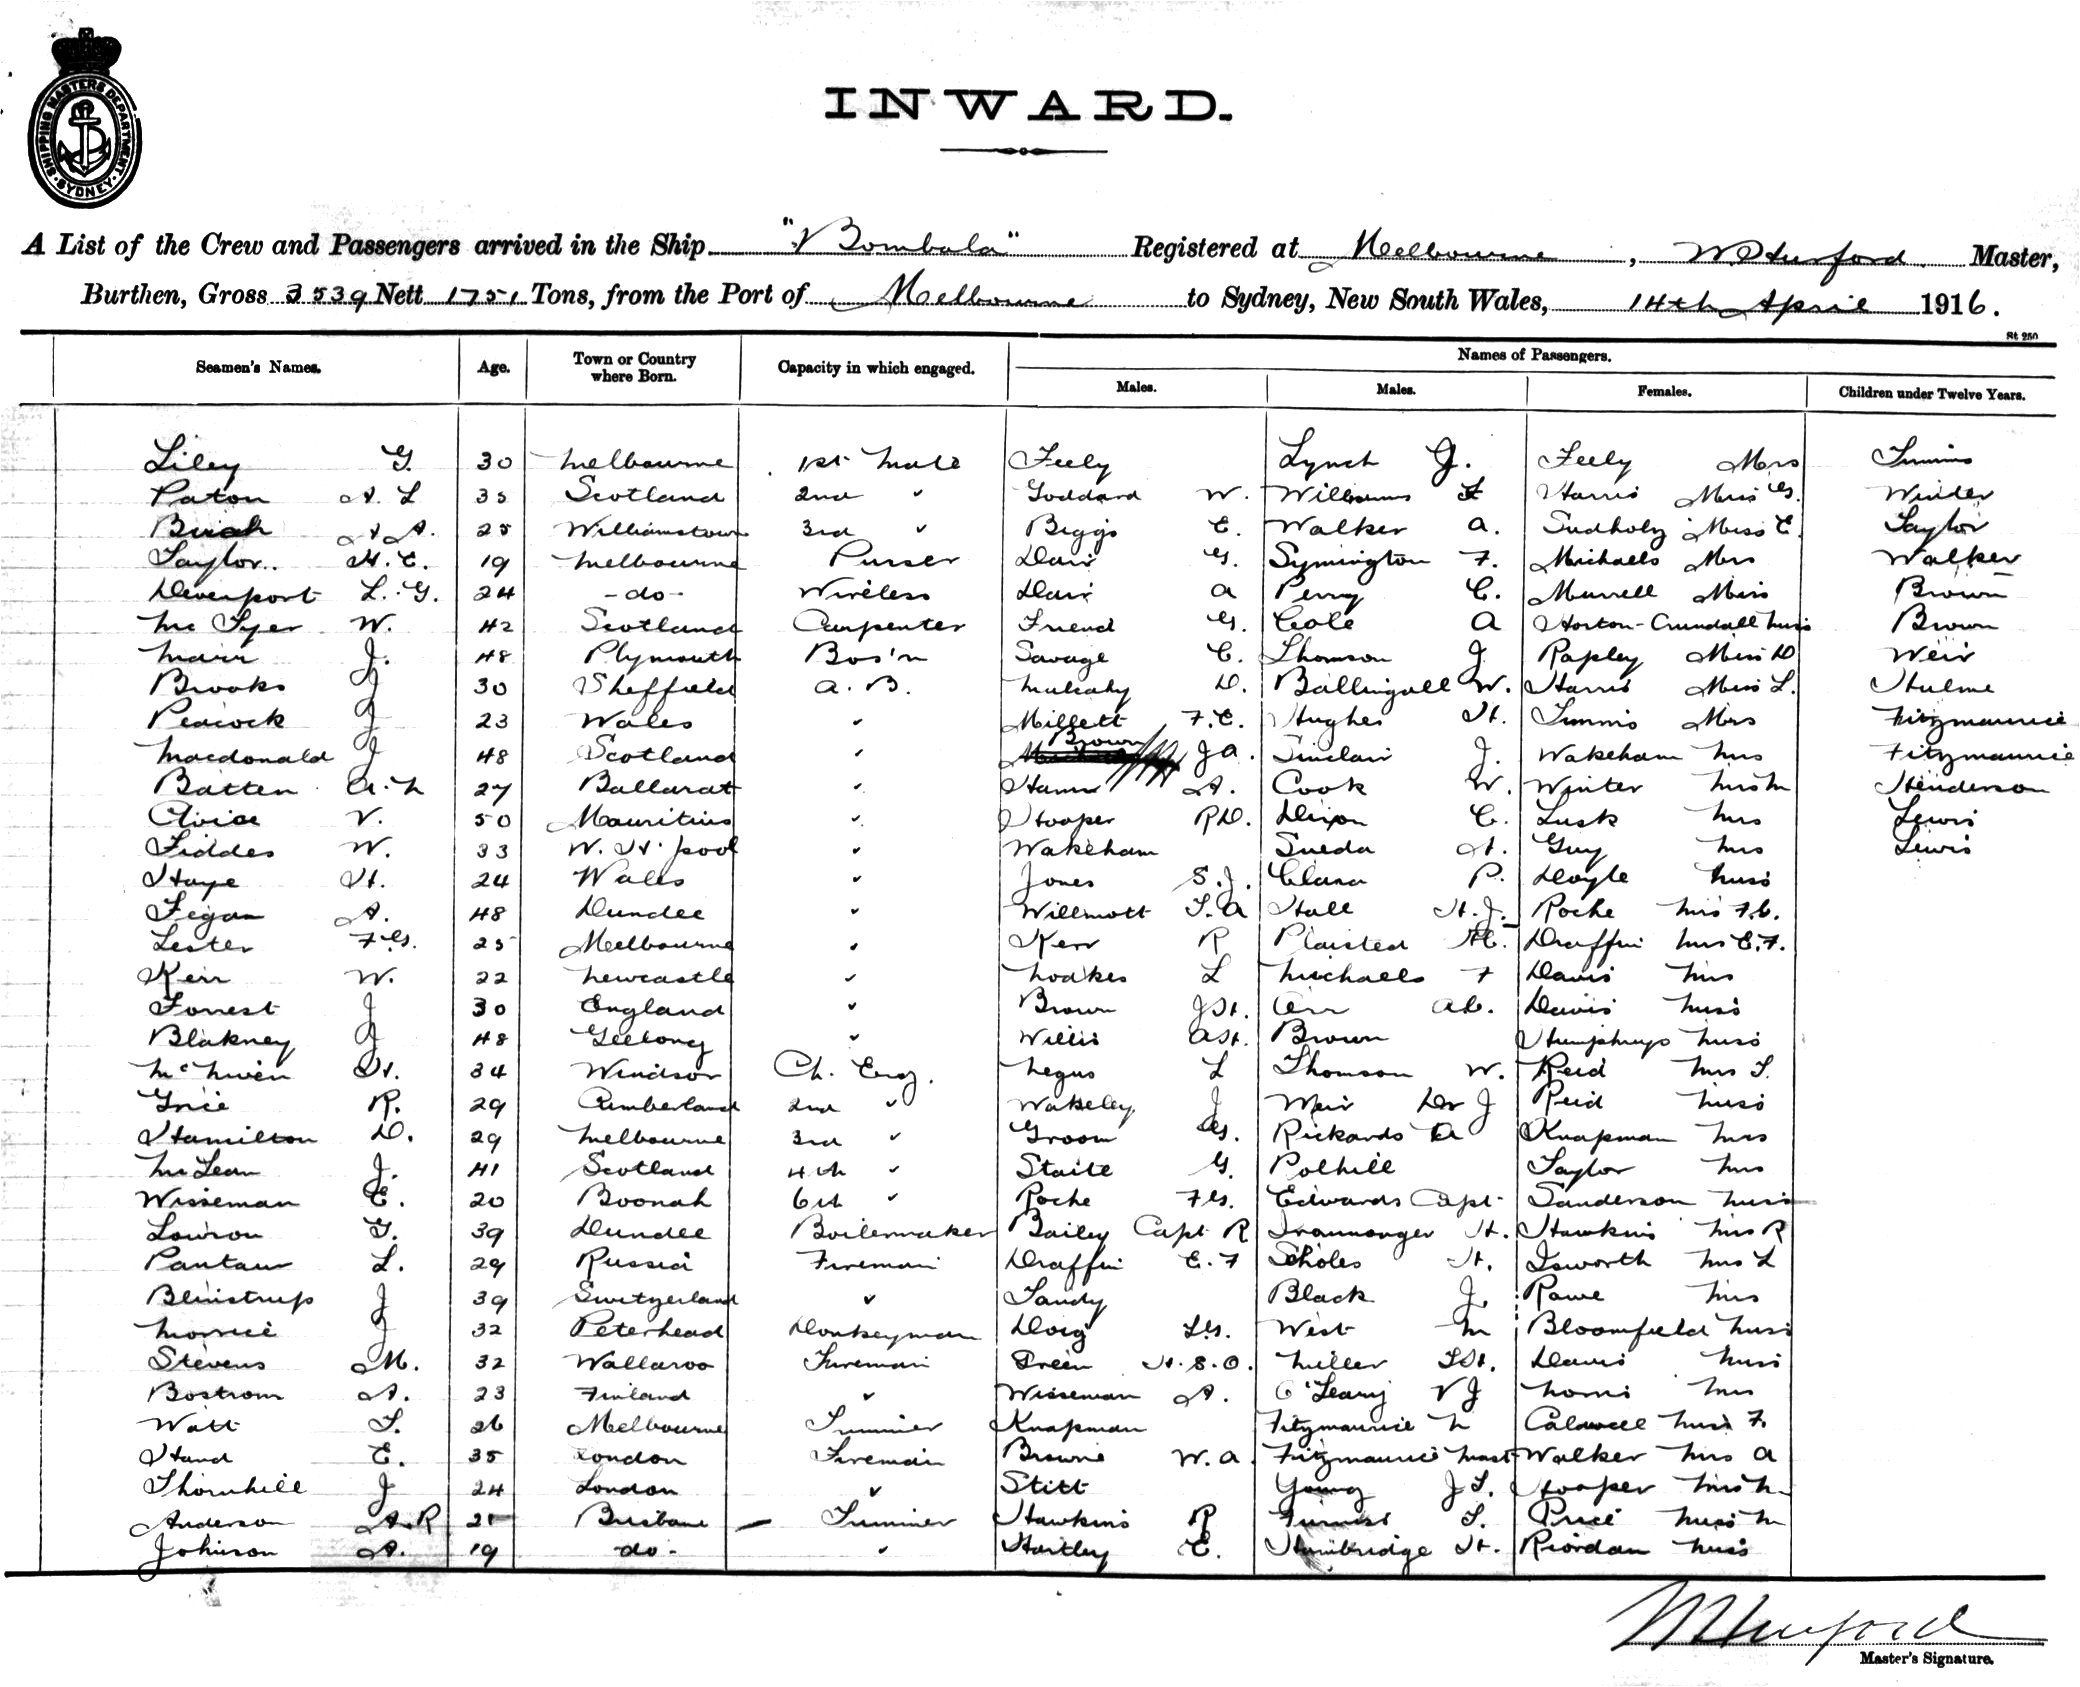 SHIPPING MASTERS DEPARTMENT SYDNEY
INWARD.
A List of the Crew and Passengers arrived in the Ship "Bombala" Registered at Melbourne, W. Hurford Master,
Burthen, Gross 3539 Nett 1751 Tons, from the Port of Melbourne to Sydney, New South Wales, 14th April 1916.
St 250
Seamen's Names. Age. Town or Country where Born. Capacity in which engaged. Names of Passengers.
Males. Males. Females. Children under Twelve Years.
Liley G. 30 Melbourne 1st Mate Feely Lynch J. Feely Mrs Timmis
Paton A. L 35 Scotland 2nd " Goddard W. Williams F Harris Miss G. Winter
Birch A. A. 25 Williamstown 3rd " Biggs E. Walker A. Sudholz Miss E. Taylor
Taylor.. H. E. 19 Melbourne Purser Dair G. Symington F. Michaels Mrs Walker
Devenport L. G. 24 - do - Wireless Dair A Perry C. Murrell Miss Brown
Mc Tyer W. 42 Scotland Carpenter Friend G. Cole A Horton-Crundall Miss Brown
Marr J. 48 Plymouth Bos'n Savage C. Thomson J Rapley Miss D Weir
Brooks J 30 Sheffield A. B. Mulcahy D. Ballingall W. Harris Miss L. Hulme
Peacock J 23 Wales " Millett F. E. Hughes H. Timmis Mrs Fitzmaurice
Macdonald J 48 Scotland " Brown J A. Sinclair J. Wakeham Mrs Fitzmaurice
Batten A. M 27 Ballarat " A. Cook W. Winter Miss M Henderson
V. 50 Mauritius " Hooper R D. Dixon C. Lusk Mrs Lewis
Fiddes W. 33 W. H. pool " Wakeham H. Guy Mrs Lewis
Haye H. 24 Wales " Jones S. J. P. Doyle Miss
Fegan A. 48 Dundee " Willmott T. A Hall H. J. Roche Mrs F. G.
Lester F. G. 25 Melbourne " Kerr R Plaisted Draffin Mrs E. F.
Kerr W. 22 Newcastle " Noakes L Michaels F Davis Mrs
Forrest J 30 England " Brown J H. Orr A C. Davis Miss
Blakney J 48 Geelong " Willis A H. Brown Humphrys Miss
McNiven H. 34 Windsor Ch. Eng. Negus L Thomson W. Reid Mrs T.
Grice R. 29 Cumberland 2nd " Wakeley J Weir Dr J Reid Miss
Hamilton D. 29 Melbourne 3rd " Groom G. Rickards A Knapman Mrs
McLean J. 41 Scotland 4th " Staite G. Polhill Taylor Mrs
Wisseman E. 20 Boonah 6th " Roche F G. Edwards Capt Sanderson Miss
Lawson G. 39 Dundee Boilermaker Bailey Capt R Ironmonger H. Hawkins Mrs R
L. 29 Russia Fireman Draffin E. F Scholes H. Isworth Mrs L
Blinstrup J 39 Switzerland " Tandy Black J. Rowe Mrs
Morrice J 32 Peterhead Donkeyman Doig West M Bloomfield Miss
Stevens M. 32 Wallaroo Fireman Green H. S. O. Miller Davis Miss
Bostrom A. 23 Finland " Wisseman A. O'Leary V J Norris Mrs
Watt T. 26 Melbourne Trimmer Knapman Fitzmaurice M Caldwell Miss F.
Hand E. 35 London Fireman Browne W. A. Fitzmaurice Mast Walker Mrs A
Thornhill J 24 London " Stitt Young J T. Hooper Miss M
Anderson A. R 21 Brisbane Trimmer Hawkins R T. Price Miss M
Johnson A. 19 do - " Hartley E. H. Riordan Miss
W Hurford
Master's Signature.